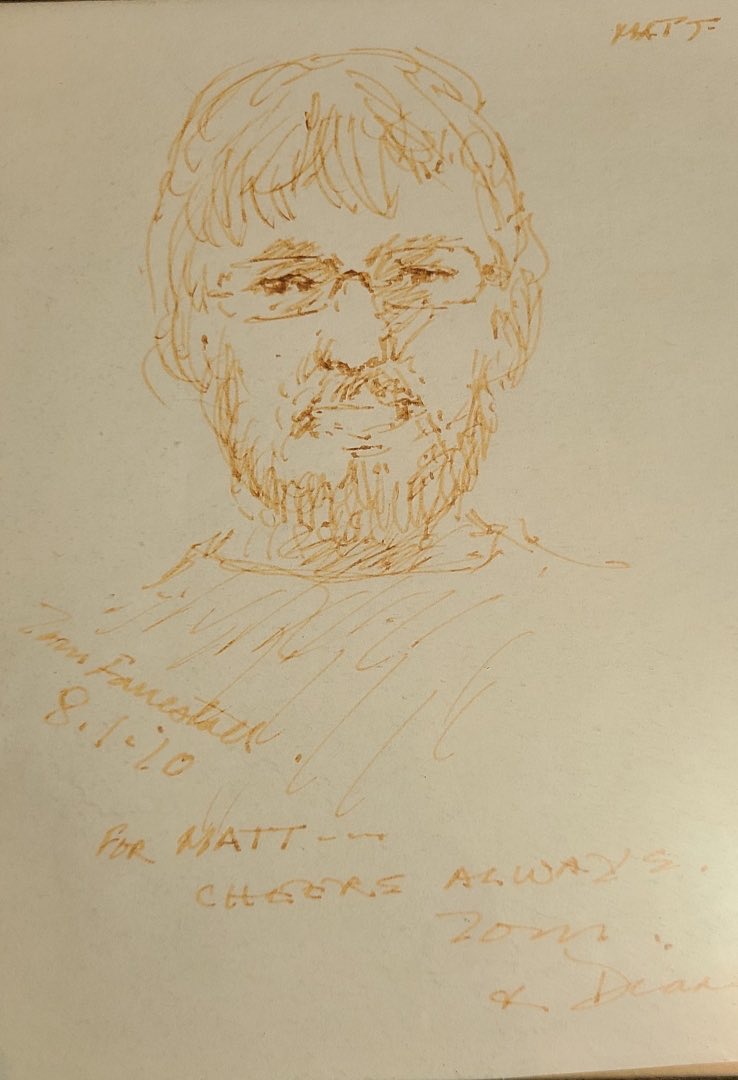 MATT
Tom Forrestall
8.1.10
FOR MATT ---
CHEERS ALWAYS.
Tom
&